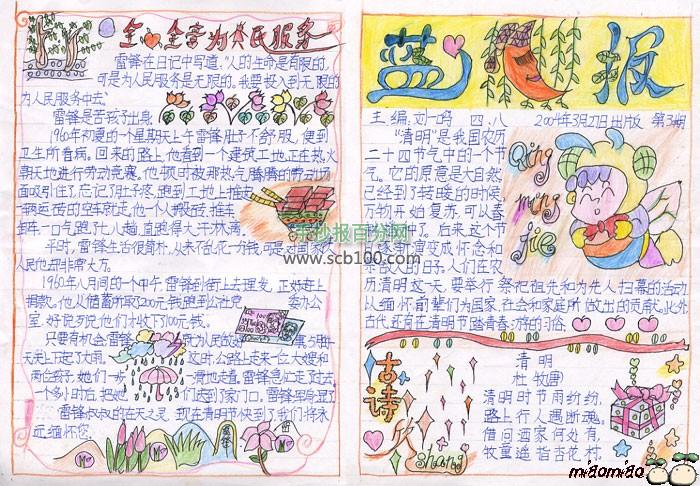 全心全意为人民服务
雷锋在日记中写道:"人的生命是有限的,
可是为人民服务是无限的。我要投入到无限的
为人民服务中去。"
雷锋是苦孩子出身
1960年初夏的一个星期天上午雷锋肚子不舒服,便到
卫生所看病。回来的路上,他看到一个建筑工地正在热火
朝天地进行劳动竞赛。他顿时被那热气腾腾的劳动场
面吸引住了,忘记了肚子疼,跑到工地上推起
一辆运砖的空车就走,他一个人搬砖,推车
一口气跑了七八趟,直跑得大汗淋漓。
平时,雷锋生活很简朴,从来不乱花一分钱,可是对
人民他却非常大方。
1960年八月间的一个中午,雷锋到街上去理发,正好赶上
捐款。他从储蓄所取200元钱跑到公社党委办公
室,好说歹说他们才收下100元钱。
只要有机会,雷锋
天天上下起了大雨。这时,公路上走来一位大嫂和
两个孩子,她们一步一滑地走着。雷锋急忙走了过去
一个多小时后,把她们送到了家门口。雷锋浑身湿了
雷锋叔叔的在天之灵,现在清明节快到了我们将永
远缅怀您。
蓝月报
主编:刘一鸣 四、八 2009年3月27日出版 第3期
"清明"是我国农历
二十四节气中的一个节
气。它的原意是大自然
已经到了转暖的时候,
万物开始复苏,可以春
耕了。后来,这个节
气逐渐演变成怀念和
亲故人的日子。人们在农
历清明这一天,要举行 祭祀祖先和为先人扫墓的活动
从缅怀前辈们为国家、社会和家庭所做出的贡献。此外
古代,还有在清明节踏青春游的习俗。
Qing
ming
jie
古诗欣
shang
清明
杜牧
清明时节雨纷纷,
路上行人欲断魂。
借问酒家何处有,
牧童遥指杏花村。
手抄报百分网
www.scb100.com
miaomiao